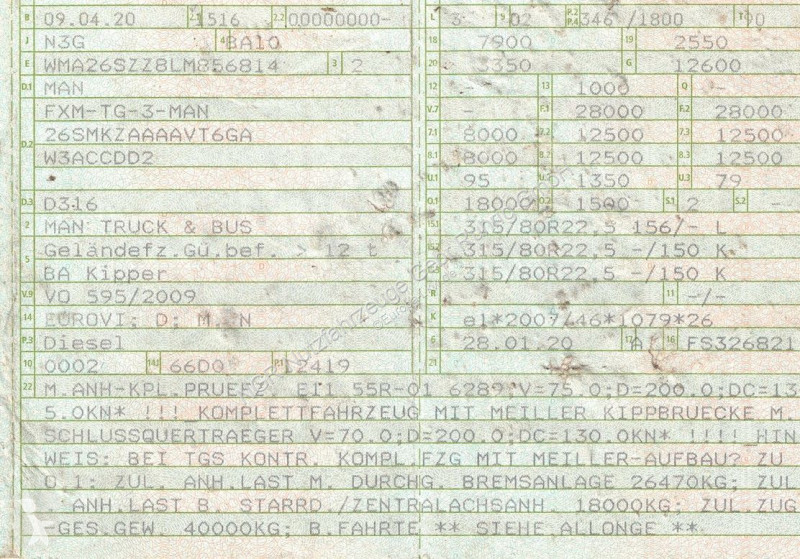 B 09.04.20 2.1 1516 2.2 00000000- L 3 9 02 P.2 P.4 346 /1800 T 90
J N3G 4 BA10 18 7900 19 2550
E WMA26SZZ8LM856814 3 2 20 3350 G 12600
D.1 MAN 12 - 13 1000 Q -
FXM-TG-3-MAN V.7 - F.1 28000 F.2 28000
D.2 26SMKZAAAAVT6GA 7.1 8000 7.2 12500 7.3 12500
W3ACCDD2 8.1 8000 8.2 12500 8.3 12500
U.1 95 U.2 1350 U.3 79
D.3 D316 O.1 18000 O.2 1500 S.1 2 S.2 -
2 MAN TRUCK & BUS 15.1 315/80R22,5 156/- L
5 Geländefz.Gü.bef. > 12 t 315/80R22,5 -/150 K
BA Kipper 315/80R22,5 -/150 K
V.9 VO 595/2009 R 11 -/-
14 EUROVI; D; M, N K e1*2007/46*1079*26
P.3 Diesel 6 28.01.20 17 A 16 FS326821
10 0002 14.1 66D0 P.1 12419 21
22 M.ANH-KPL.PRUEFZ E11 55R-01 6289;V=75.0;D=200.0;DC=13
5.0KN* !!!_KOMPLETTFAHRZEUG MIT MEILLER KIPPBRUECKE M.
SCHLUSSQUERTRAEGER V=70.0;D=200.0;DC=130.0KN* !!!!_HIN
WEIS: BEI TGS KONTR. KOMPL.FZG MIT MEILLER-AUFBAU? ZU
O.1: ZUL. ANH.LAST M. DURCHG. BREMSANLAGE 26470KG; ZUL
. ANH.LAST B. STARRD./ZENTRALACHSANH. 18000KG; ZUL.ZUG
-GES.GEW. 40000KG; B.FAHRTE ** SIEHE ALLONGE **.